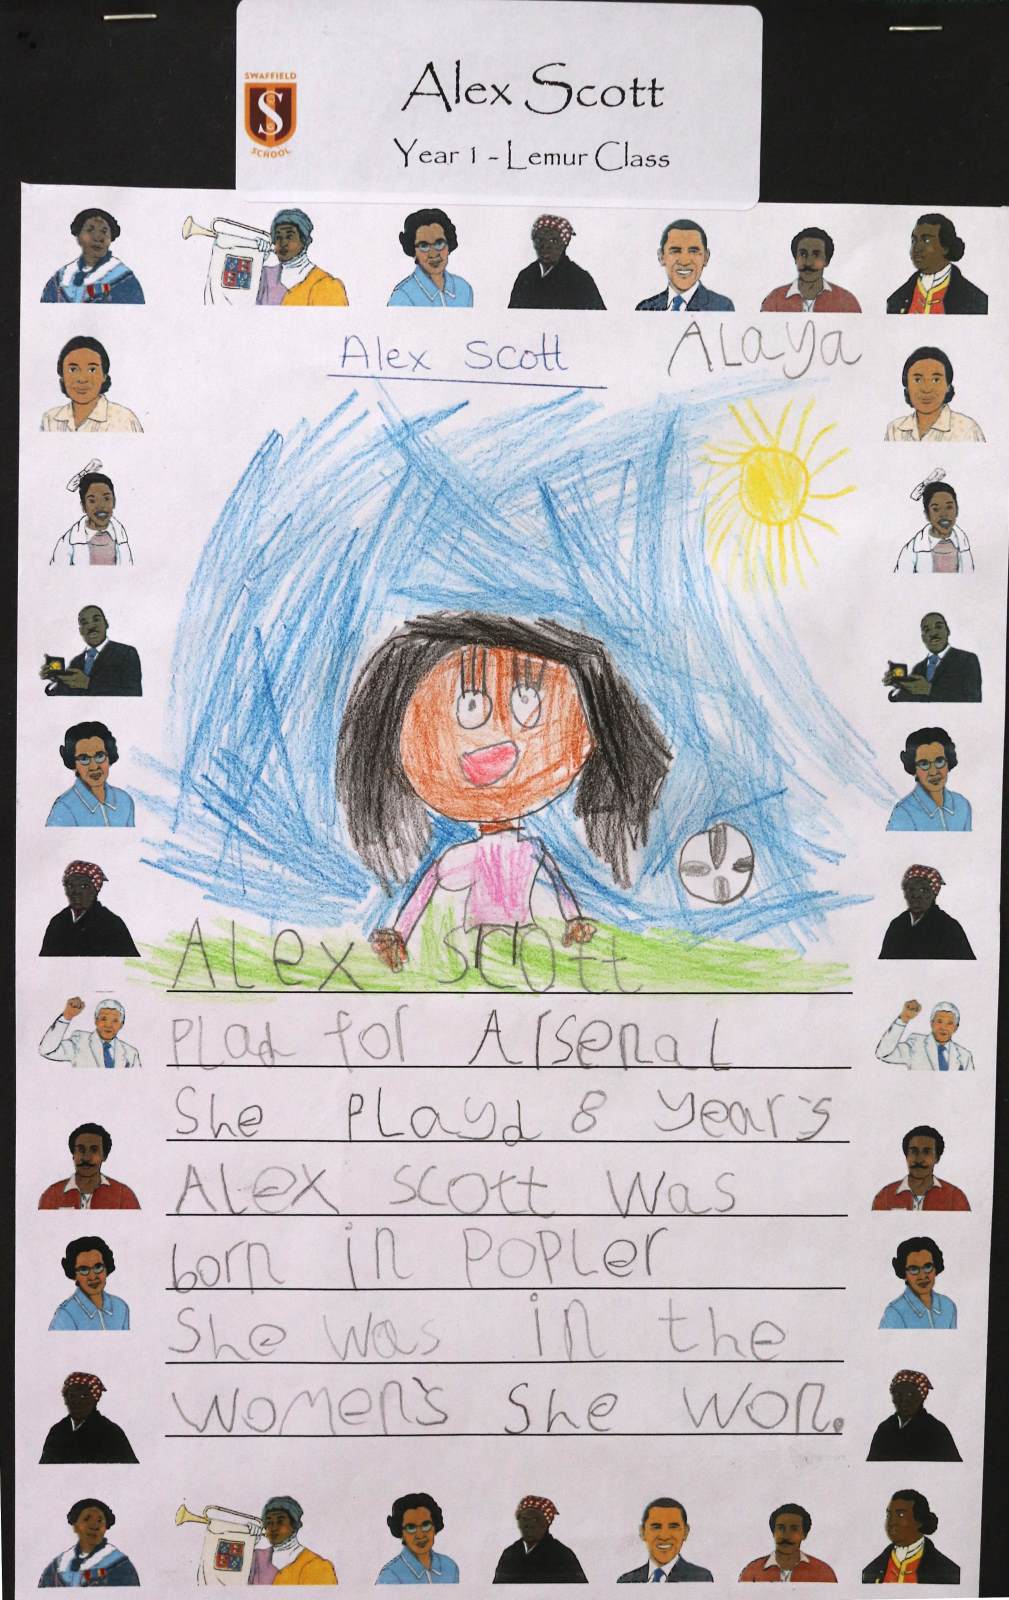 SWAFFIELD
S
SCHOOL
Alex Scott
Year 1 - Lemur Class
Alex Scott
ALaya
ALex scott
PLad for Arsenal
She PLayd 8 year's
ALex scott was
born in POPLer
She was in the
women's She won.